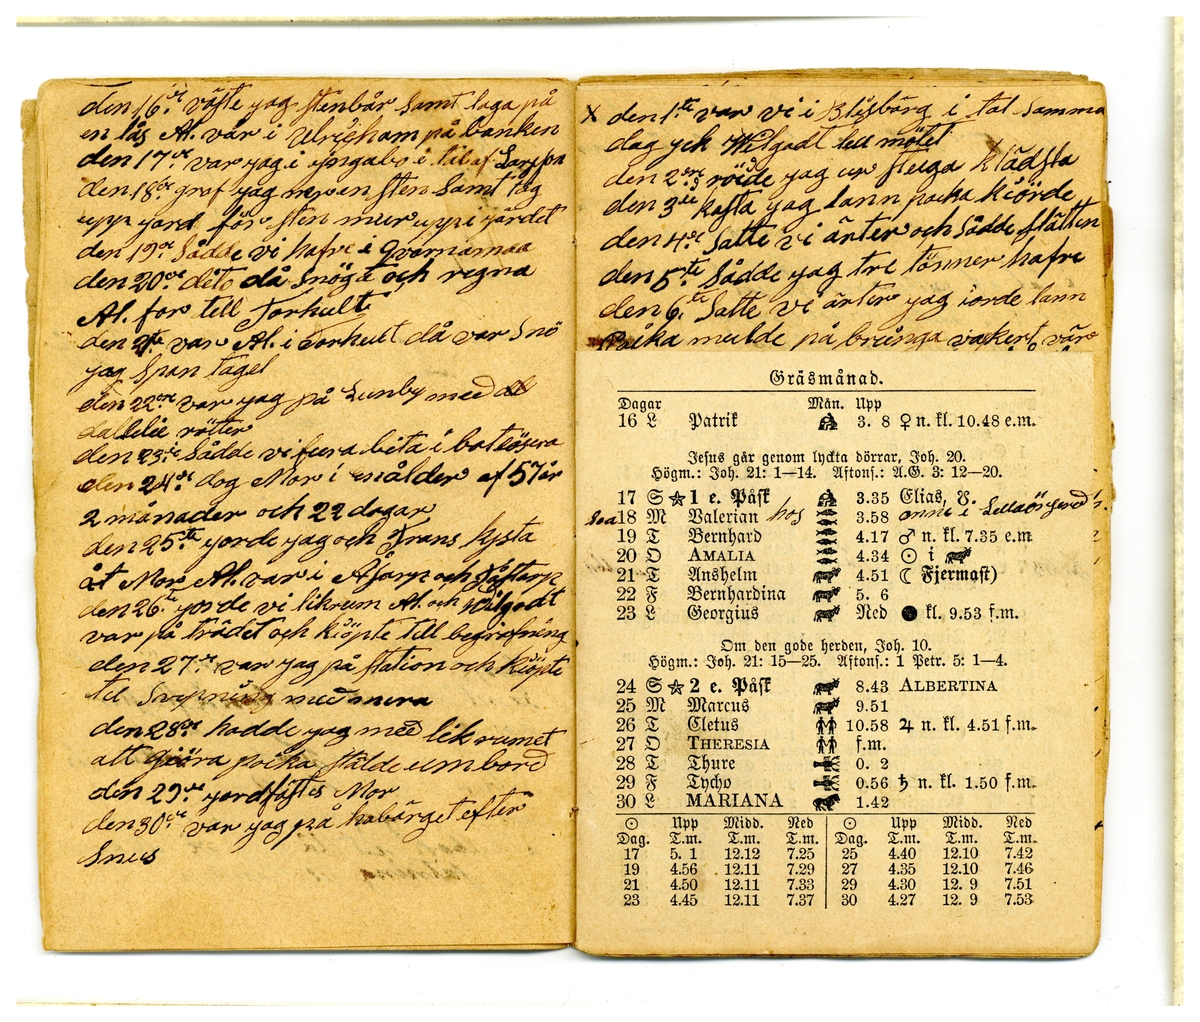 den 16de växte jag stenbår samt laga på
en lås Al. var i Ulricham på banken
den 17de var jag i Yngabo i tal af Larsson
den 18de graf jag repen sten samt tog
upp jord för sten mur uppe i järdet
den 19de sådde vi hafre i Qvarnamaa
den 20de dito då snögt och regna
Al. for tell Torhult
den var Al. i Torhult då var Snö
jag Span tagel
den 22dre var jag på Lunby med
röiter
den 23de sådde vi beta i
den 24de dog Mor i en ålder af 57 år
2 månader och 22 dagar
den 25te jorde jag och Frans kjsta
åt Mor Al. var i och
den 26te jorde vi likrum Al. och Hilgodt
var på trädet och kiöpte till begrafning
den 27de var jag på station och kiöpte
til med mera
den 28de hadde jag med lik rumet
att giöra påika stälde um bord
den 29de jordfästes Mor
den 30de var jag på habärget efter
Snus
X den 1te var vi i Blisbärg i tal samma
dag jek Hilgodt tell mötet
den 2dre röide jag up stuga Klädsta
den 3de kasta jag lann poika kiörde
den 4de Satte vi ärter och Sådde slätten
den 5te Sådde jag tre tönner hafre
den 6te Satte vi ärter jag iorde lann
Påika mulde på brunga vakert vär
Gräsmånad.
Dagar Mån. Upp
16 L Patrik 3. 8 ♀ n. kl. 10.48 e.m.
Jesus går genom lyckta dörrar, Joh. 20.
Högm.: Joh. 21: 1—14. Aftons.: A.G. 3: 12—20.
17 S ☆ 1 e. Påsk 3.35 Elias, 8.
18 M Valerian hos 3.58 onni i
19 T Bernhard 4.17 ♂ n. kl. 7.35 e.m
20 O AMALIA 4.34 ☉ i
21 T Anshelm 4.51 ☾ Fjermast)
22 F Bernhardina 5. 6
23 L Georgius Ned ● kl. 9.53 f.m.
Om den gode herden, Joh. 10.
Högm.: Joh. 21: 15—25. Aftons.: 1 Petr. 5: 1—4.
24 S ☆ 2 e. Påsk 8.43 ALBERTINA
25 M Marcus 9.51
26 T Cletus 10.58 ♃ n. kl. 4.51 f.m.
27 O THERESIA f.m.
28 T Thure 0. 2
29 F Tycho 0.56 ♄ n. kl. 1.50 f.m.
30 L MARIANA 1.42
☉ Upp Midd. Ned ☉ Upp Midd. Ned
Dag. T.m. T.m. T.m. Dag. T.m. T.m. T.m.
17 5. 1 12.12 7.25 25 4.40 12.10 7.42
19 4.56 12.11 7.29 27 4.35 12.10 7.46
21 4.50 12.11 7.33 29 4.30 12. 9 7.51
23 4.45 12.11 7.37 30 4.27 12. 9 7.53